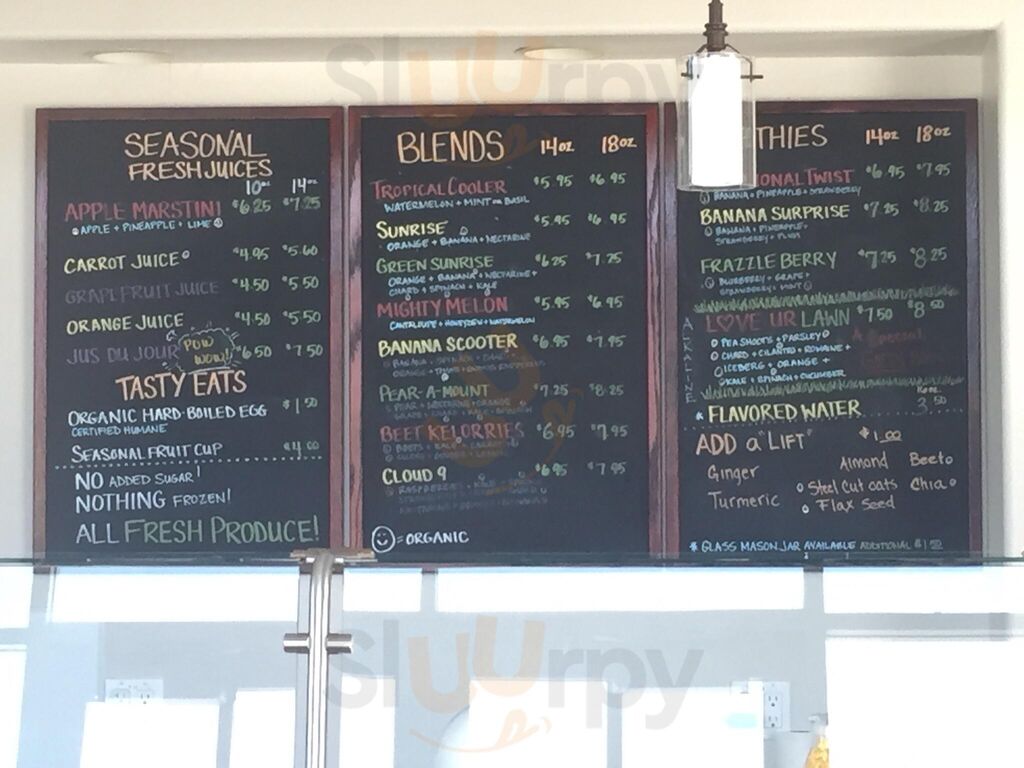 SEASONAL
FRESH JUICES
10oz 14oz
APPLE MARSTINI $6.25 $7.25
APPLE + PINEAPPLE + LIME
CARROT JUICE $4.95 $5.60
GRAPEFRUIT JUICE $4.50 $5.50
ORANGE JUICE $4.50 $5.50
JUS DU JOUR POW WOW! $6.50 $7.50
TASTY EATS
ORGANIC HARD-BOILED EGG $1.50
CERTIFIED HUMANE
SEASONAL FRUIT CUP $4.00
NO ADDED SUGAR!
NOTHING FROZEN!
ALL FRESH PRODUCE!
BLENDS 14oz 18oz
TROPICAL COOLER $5.95 $6.95
WATERMELON + MINT OR BASIL
SUNRISE $5.95 $6.95
ORANGE + BANANA + NECTARINE
GREEN SUNRISE $6.25 $7.25
ORANGE + BANANA + NECTARINE +
CHARD + SPINACH + KALE
MIGHTY MELON $5.95 $6.95
CANTALOUPE + HONEYDEW + WATERMELON
BANANA SCOOTER $6.95 $7.95
BANANA + SPINACH +
PEAR-A-MOUNT $7.25 $8.25
BEET KELORRIES $6.95 $7.95
CLOUD 9 $6.95 $7.95
= ORGANIC
THIES 14oz 18oz
IONAL TWIST $6.95 $7.95
BANANA + PINEAPPLE + STRAWBERRY
BANANA SURPRISE $7.25 $8.25
BANANA + PINEAPPLE +
STRAWBERRY +
FRAZZLE BERRY $7.25 $8.25
BLUEBERRY + GRAPE +
STRAWBERRY + MINT
ALKALINE
LOVE UR LAWN $7.50 $8.50
PEA SHOOTS + PARSLEY
CHARD + CILANTRO + ROMAINE +
ICEBERG + ORANGE +
KALE + SPINACH + CUCUMBER
A Special
* FLAVORED WATER 3.50
ADD a "LIFT" $1.00
Ginger Almond Beet
Turmeric Steel Cut Oats Chia
Flax Seed
* GLASS MASON JAR AVAILABLE ADDITIONAL $1.50
Sluurpy
Sluurpy